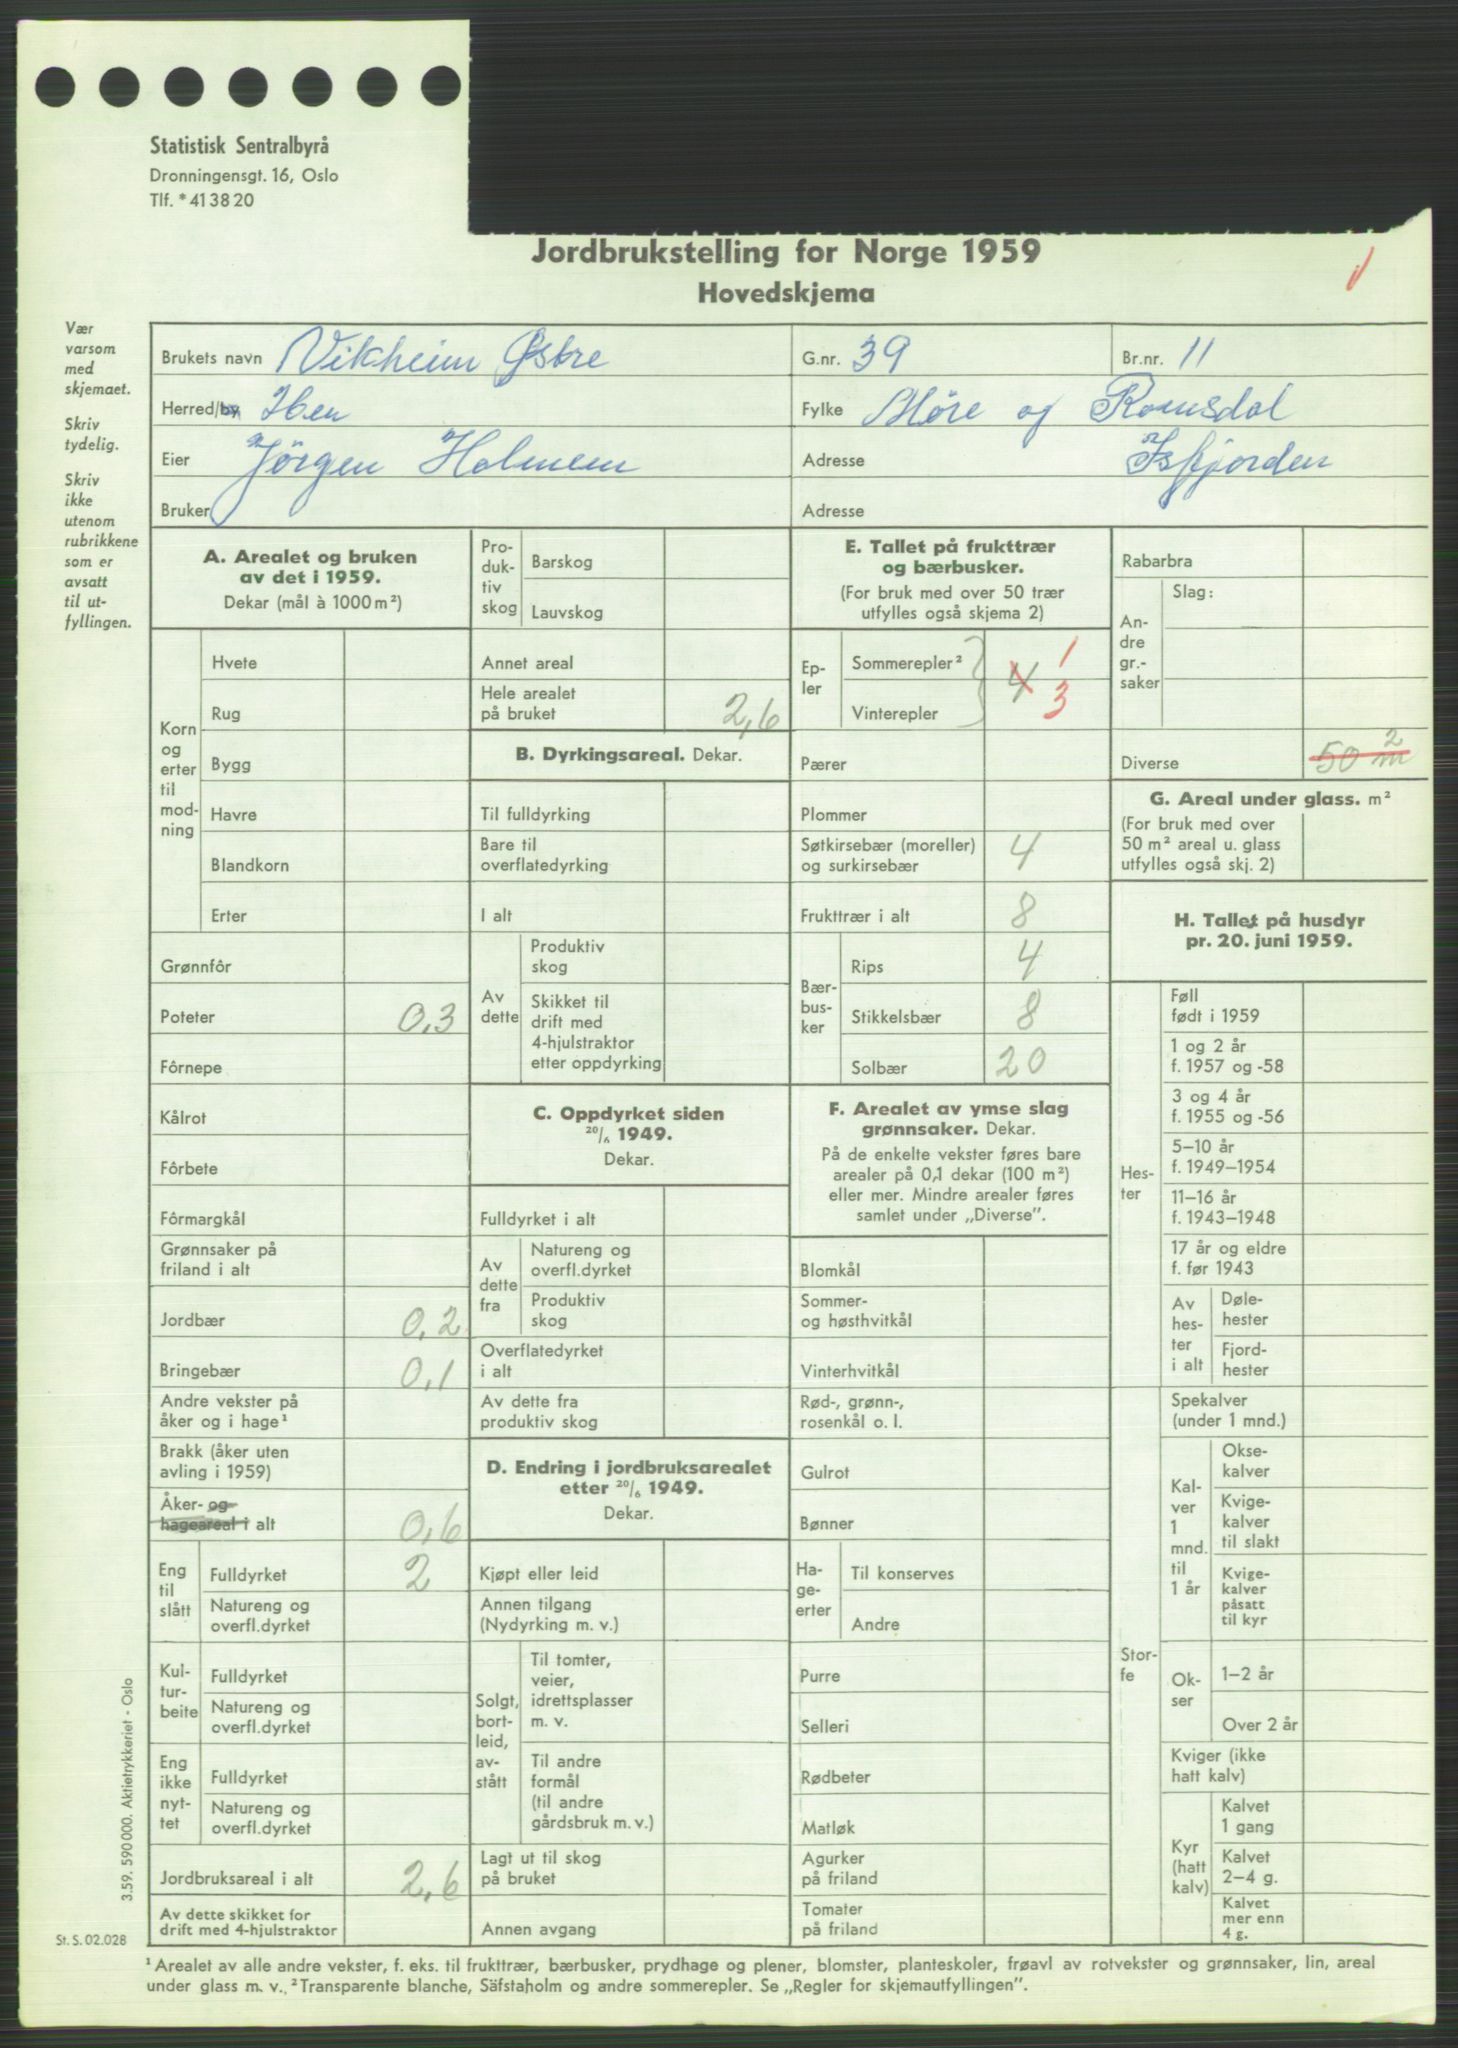 Statistisk Sentralbyrå
Dronningensgt. 16, Oslo
Tlf. * 41 38 20
Jordbrukstelling for Norge 1959
Hovedskjema
Vær
varsom
med
skjemaet.
Skriv
tydelig.
Skriv
ikke
utenom
rubrikkene
som er
avsatt
til ut-
fyllingen.
Brukets navn Vikheim Østre G.nr. 39 Br.nr. 11
Herred/by Hen Fylke Møre og Romsdal
Eier Jörgen Holmem Adresse Isfjorden
Bruker Adresse
A. Arealet og bruken
av det i 1959.
Dekar (mål à 1000 m²)
Korn
og
erter
til
mod-
ning
Hvete
Rug
Bygg
Havre
Blandkorn
Erter
Grønnfôr
Poteter 0,3
Fôrnepe
Kålrot
Fôrbete
Fôrmargkål
Grønnsaker på
friland i alt
Jordbær 0,2
Bringebær 0,1
Andre vekster på
åker og i hage¹
Brakk (åker uten
avling i 1959)
Åker- og
hageareal i alt 0,6
Eng
til
slått
Fulldyrket 2
Natureng og
overfl.dyrket
Kul-
tur-
beite
Fulldyrket
Natureng og
overfl.dyrket
Eng
ikke
nyt-
tet
Fulldyrket
Natureng og
overfl.dyrket
Jordbruksareal i alt 2,6
Av dette skikket for
drift med 4-hjulstraktor
Pro-
duk-
tiv
skog
Barskog
Lauvskog
Annet areal
Hele arealet
på bruket 2,6
B. Dyrkingsareal. Dekar.
Til fulldyrking
Bare til
overflatedyrking
I alt
Av
dette
Produktiv
skog
Skikket til
drift med
4-hjulstraktor
etter oppdyrking
C. Oppdyrket siden
20/6 1949.
Dekar.
Fulldyrket i alt
Av
dette
fra
Natureng og
overfl.dyrket
Produktiv
skog
Overflatedyrket
i alt
Av dette fra
produktiv skog
D. Endring i jordbruksarealet
etter 20/6 1949.
Dekar.
Kjøpt eller leid
Annen tilgang
(Nydyrking m. v.)
Solgt,
bort-
leid,
av-
stått
Til tomter,
veier,
idrettsplasser
m. v.
Til andre
formål
(til andre
gårdsbruk m. v.)
Lagt ut til skog
på bruket
Annen avgang
E. Tallet på frukttrær
og bærbusker.
(For bruk med over 50 trær
utfylles også skjema 2)
Ep-
ler
Sommerepler² 1
4
Vinterepler 3
Pærer
Plommer
Søtkirsebær (moreller)
og surkirsebær 4
Frukttrær i alt 8
Bær-
bus-
ker
Rips 4
Stikkelsbær 8
Solbær 20
F. Arealet av ymse slag
grønnsaker. Dekar.
På de enkelte vekster føres bare
arealer på 0,1 dekar (100 m²)
eller mer. Mindre arealer føres
samlet under „Diverse”.
Blomkål
Sommer-
og høsthvitkål
Vinterhvitkål
Rød-, grønn-,
rosenkål o. l.
Gulrot
Bønner
Ha-
ge-
erter
Til konserves
Andre
Purre
Selleri
Rødbeter
Matløk
Agurker
på friland
Tomater
på friland
Rabarbra
An-
dre
gr.-
saker
Slag:
Diverse 50 m²
G. Areal under glass. m²
(For bruk med over
50 m² areal u. glass
utfylles også skj. 2)
H. Tallet på husdyr
pr. 20. juni 1959.
Hes-
ter
Føll
født i 1959
1 og 2 år
f. 1957 og -58
3 og 4 år
f. 1955 og -56
5–10 år
f. 1949–1954
11–16 år
f. 1943–1948
17 år og eldre
f. før 1943
Av
hes-
ter
i alt
Døle-
hester
Fjord-
hester
Stor-
fe
Spekalver
(under 1 mnd.)
Kal-
ver
1
mnd.
til
1 år
Okse-
kalver
Kvige-
kalver
til slakt
Kvige-
kalver
påsatt
til kyr
Ok-
ser
1–2 år
Over 2 år
Kviger (ikke
hatt kalv)
Kyr
(hatt
kalv)
Kalvet
1 gang
Kalvet
2–4 g.
Kalvet
mer enn
4 g.
3.59. 590 000. Aktietrykkeriet - Oslo
St. S. 02.028
¹ Arealet av alle andre vekster, f. eks. til frukttrær, bærbusker, prydhage og plener, blomster, planteskoler, frøavl av rotvekster og grønnsaker, lin, areal
under glass m. v. ² Transparente blanche, Säfstaholm og andre sommerepler. Se „Regler for skjemautfyllingen”.